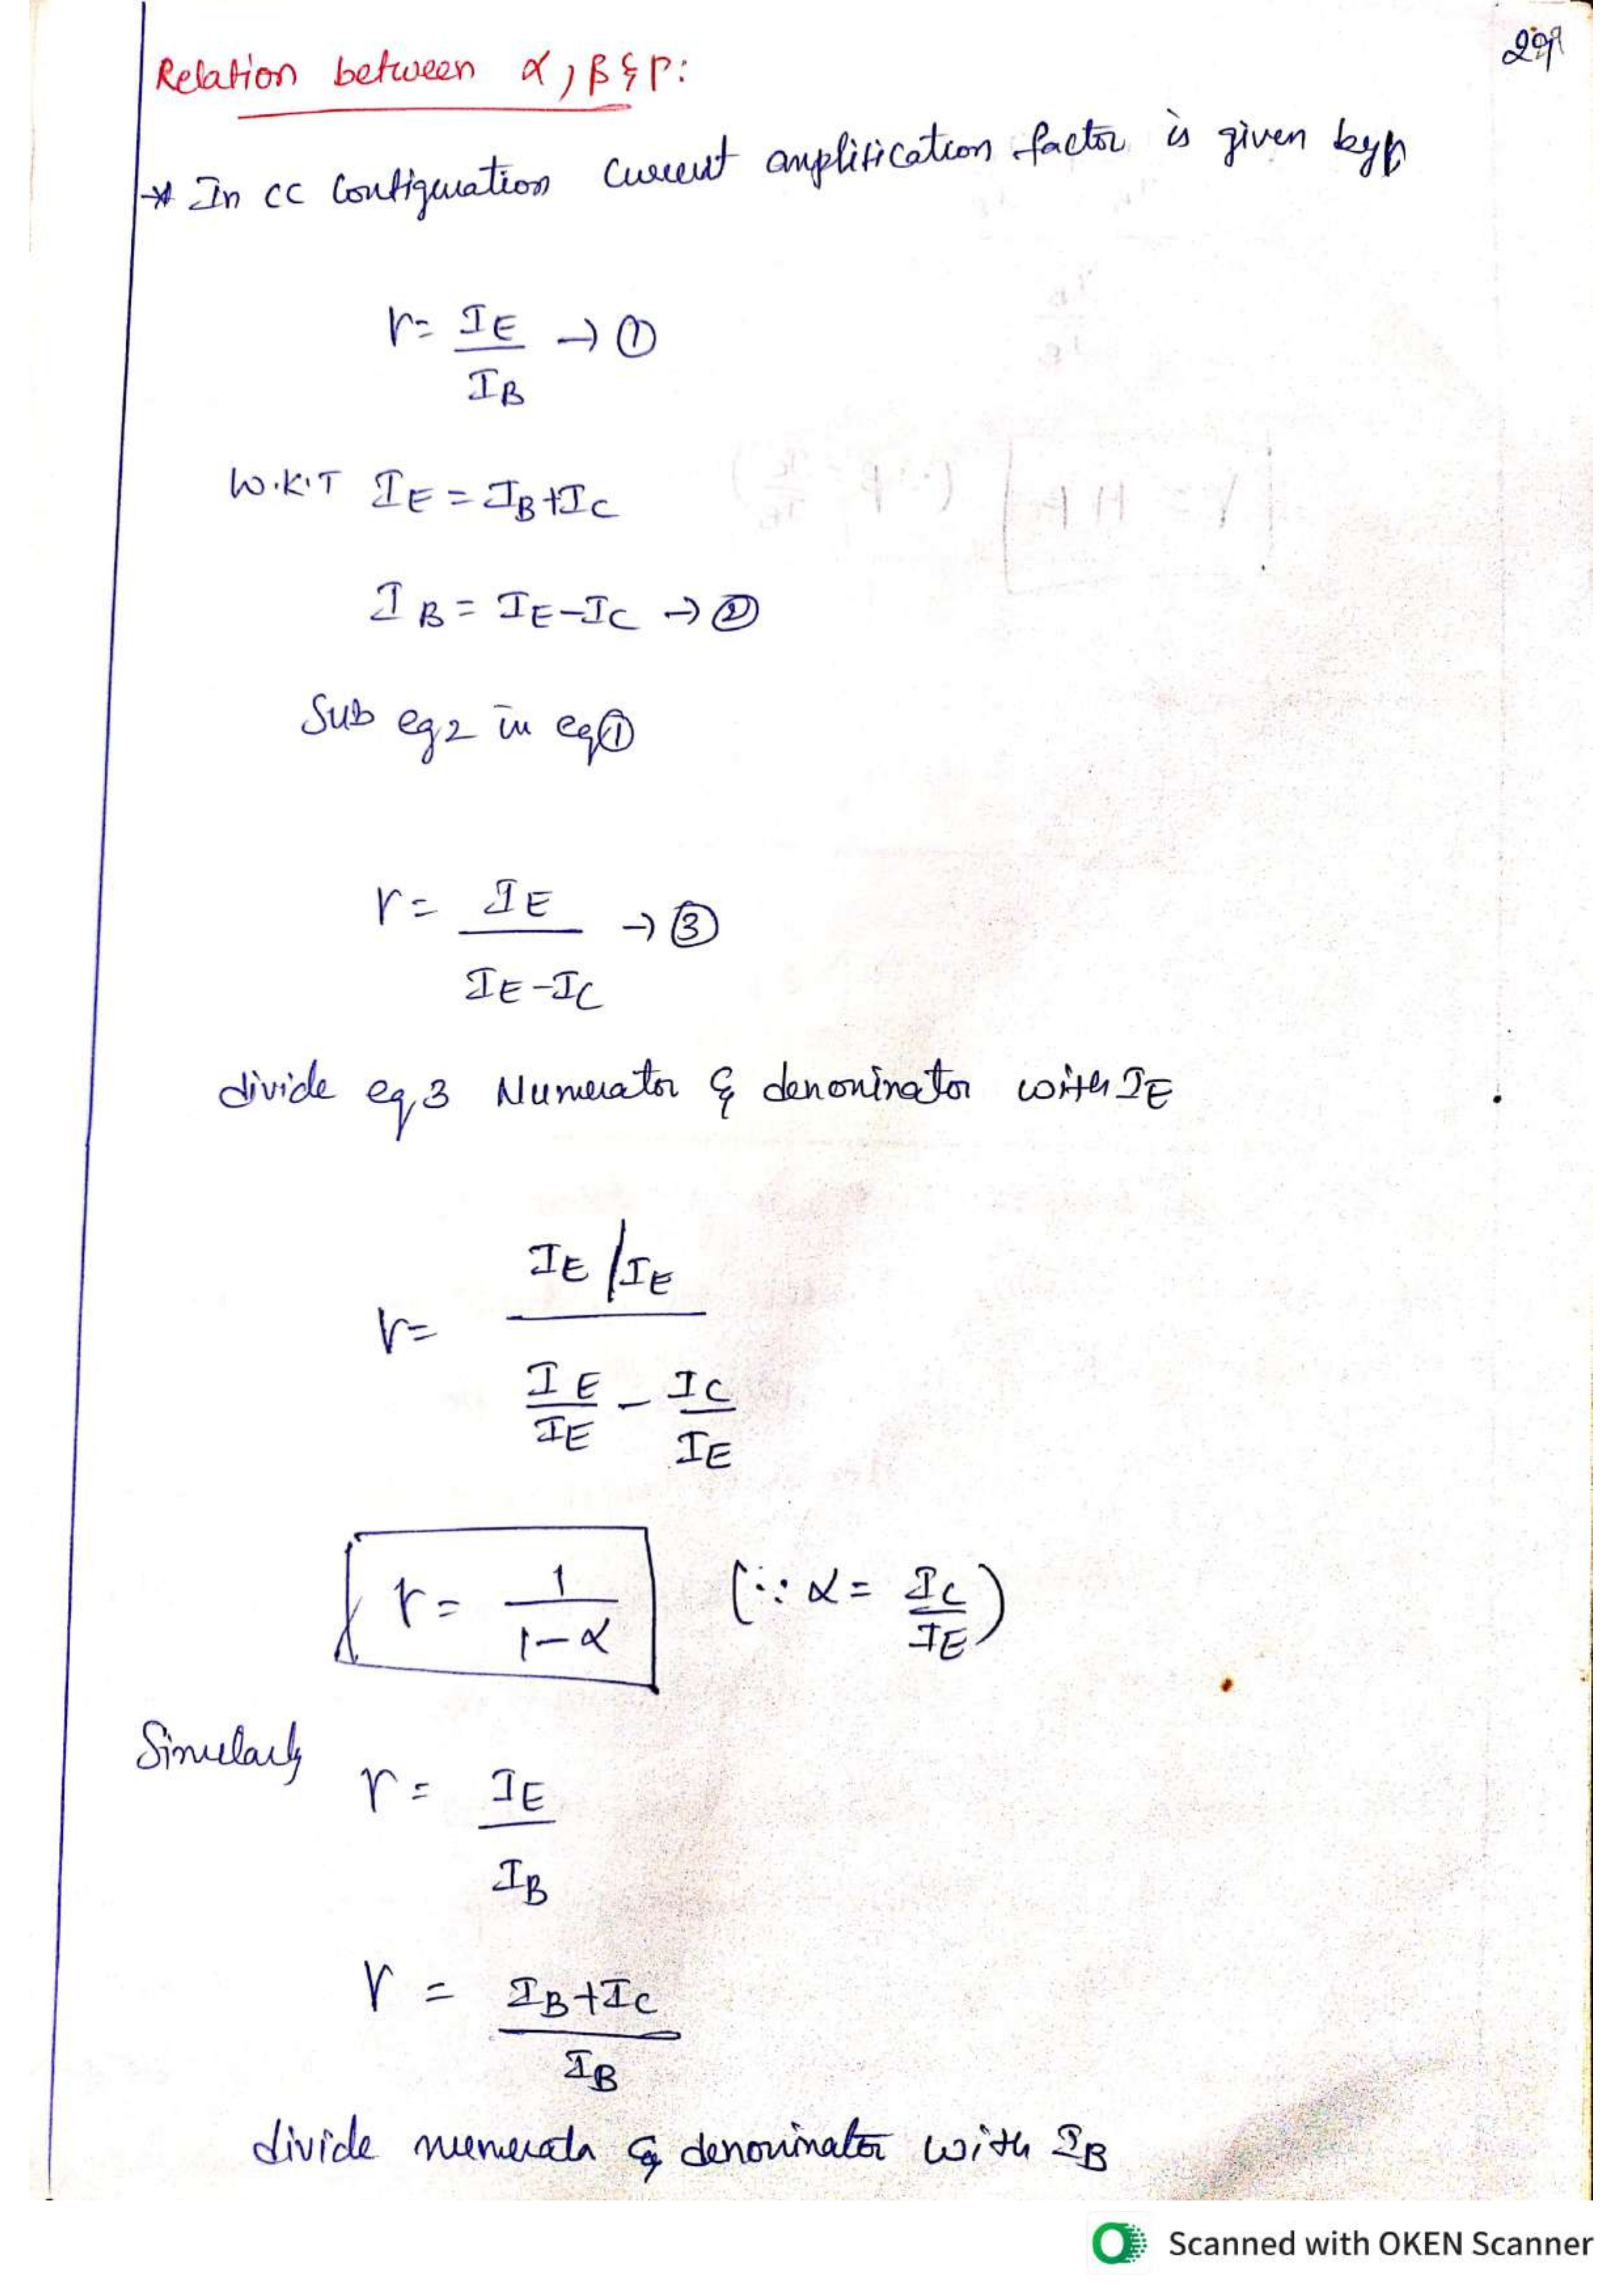 29
Relation between α, β & γ:
→* In CC Configuration Current amplification factor is given by
γ = IE/IB → ①
W.K.T IE = IB+IC
IB = IE-IC → ②
Sub eq2 in eq①
γ = IE/(IE-IC) → ③
divide eq,3 Numerator & denominator with IE
γ = (IE/IE)/(IE/IE - IC/IE)
γ = 1/(1-α) (∵ α = IC/IE)
Similarly
γ = IE/IB
γ = (IB+IC)/IB
divide numerator & denominator with IB
Scanned with OKEN Scanner